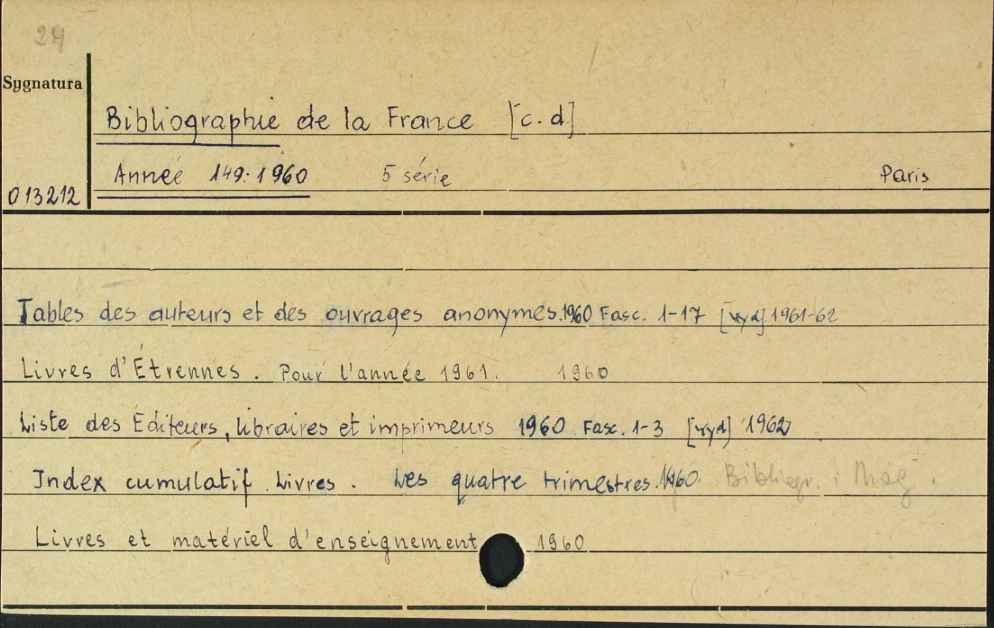 24
Sygnatura
Bibliographie de la France [c.d]
Année 149. 1960 5 série Paris
013212
Tables des auteurs et des ouvrages anonymes. 1960 Fasc. 1-17 [wyd] 1961-62
Livres d'Étrennes. Pour l'année 1961. 1960
Liste des Éditeurs, libraires et imprimeurs 1960 Fasc. 1-3 [wyd] 1962
Index cumulatif Livres. Les quatre trimestres. 1960. Bibliogr. i Mag.
Livres et matériel d'enseignement 1960